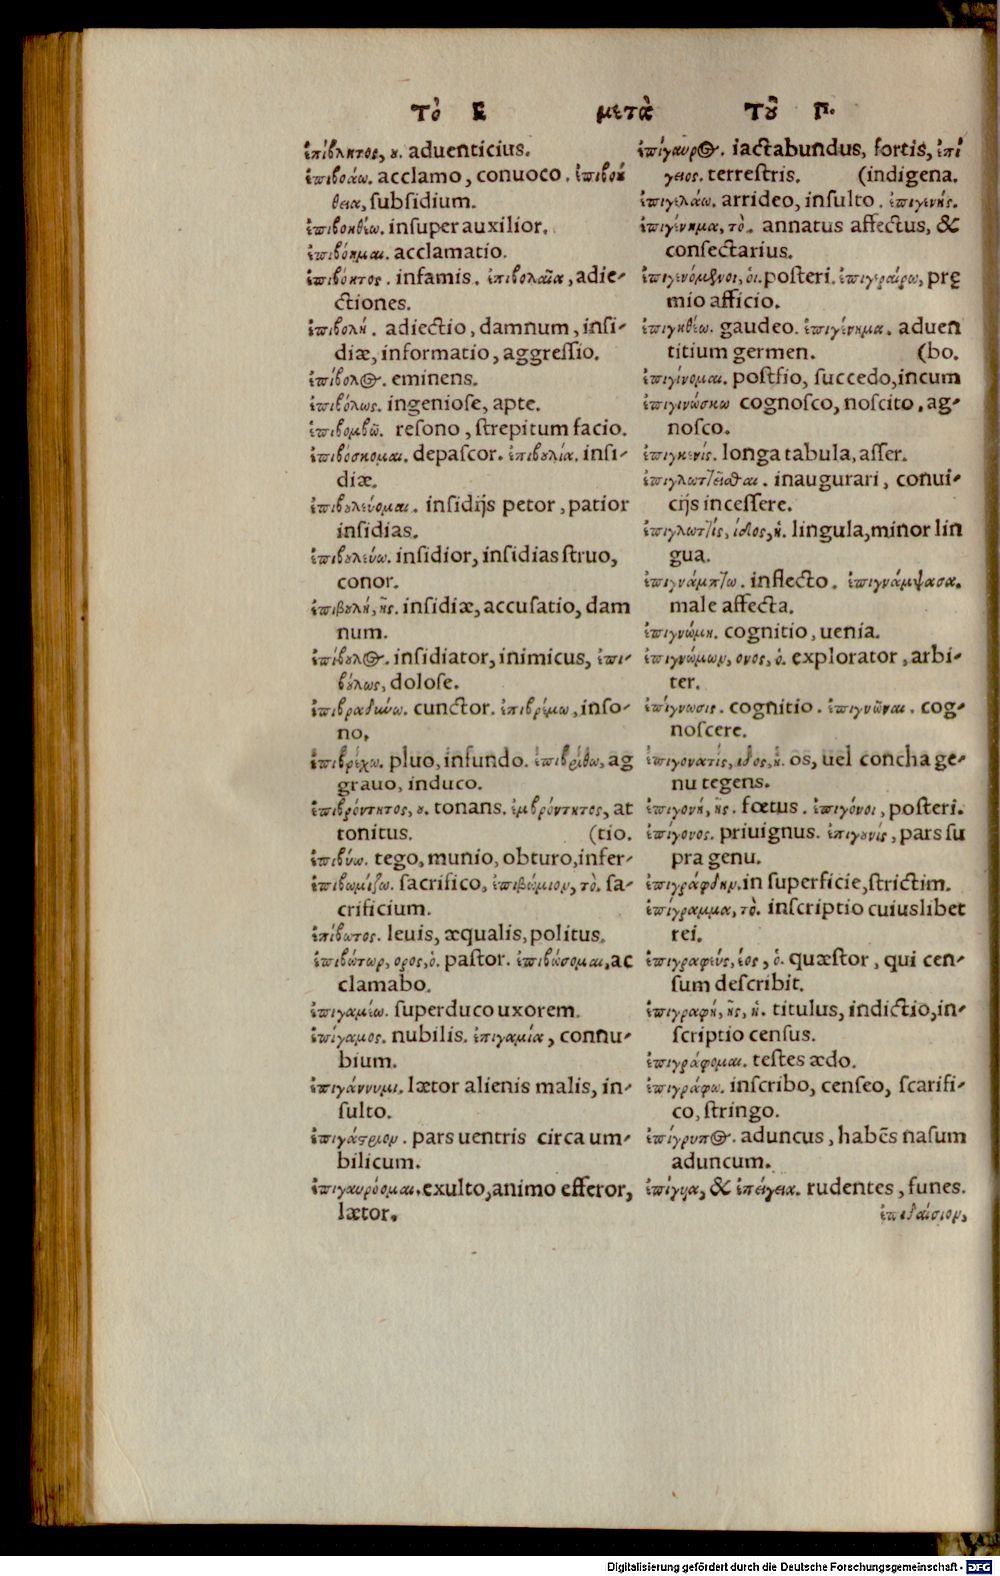 Τὸ Ε μετὰ Τοῦ Γ.
ἐπίβλητος, ου. aduenticius.
ἐπιβοάω. acclamo, conuoco. ἐπιβοή
θεια, subsidium.
ἐπιβοηθέω. insuper auxilior.
ἐπιβόημαι. acclamatio.
ἐπιβόητος. infamis. ἐπιβολαῖα, adie-
ctiones.
ἐπιβολή. adiectio, damnum, insi-
diæ, informatio, aggressio.
ἐπίβολος. eminens.
ἐπιβόλως. ingeniose, apte.
ἐπιβομβῶ. resono, strepitum facio.
ἐπιβόσκομαι. depascor. ἐπιβουλία. insi-
diæ.
ἐπιβουλεύομαι. insidijs petor, patior
insidias.
ἐπιβουλεύω. insidior, insidias struo,
conor.
ἐπιβουλή, ῆς. insidiæ, accusatio, dam
num.
ἐπίβουλος. insidiator, inimicus, ἐπι-
βούλως, dolose.
ἐπιβραδύνω. cunctor. ἐπιβρέμω, inso-
no.
ἐπιβρέχω. pluo, infundo. ἐπιβρίθω, ag
grauo, induco.
ἐπιβρόντητος, ου. tonans. ἐμβρόντητος, at
tonitus. (tio.
ἐπιβύω. tego, munio, obturo, infer-
ἐπιβωμίζω. sacrifico, ἐπιβώμιον, τὸ. sa-
crificium.
ἐπίβωτος. leuis, æqualis, politus.
ἐπιβώτωρ, ορος, ὁ. pastor. ἐπιβώσομαι, ac
clamabo.
ἐπιγαμέω. superduco uxorem.
ἐπίγαμος. nubilis. ἐπιγαμία, connu-
bium.
ἐπιγάννυμι. lætor alienis malis, in-
sulto.
ἐπιγάστριον. pars uentris circa um-
bilicum.
ἐπιγαυρόομαι. exulto, animo efferor,
lætor.
ἐπίγαυρος. iactabundus, fortis, ἐπί
γειος. terrestris. (indigena.
ἐπιγελάω. arrideo, insulto. ἐπιγενής.
ἐπιγένημα, τὸ. annatus affectus, &
consectarius.
ἐπιγενόμενοι, οἱ. posteri. ἐπιγεραίρω, prę
mio afficio.
ἐπιγηθέω. gaudeo. ἐπιγένημα. aduen
titium germen. (bo.
ἐπιγίνομαι. postfio, succedo, incum
ἐπιγινώσκω cognosco, noscito, ag-
nosco.
ἐπιγκενίς. longa tabula, asser.
ἐπιγλωττεῖσθαι. inaugurari, conui-
cijs incessere.
ἐπιγλωττίς, ίδος, ἡ. lingula, minor lin
gua.
ἐπιγνάμπτω. inflecto. ἐπιγνάμψασα.
male affecta.
ἐπιγνώμη. cognitio, uenia.
ἐπιγνώμων, ονος, ὁ. explorator, arbi-
ter.
ἐπίγνωσις. cognitio. ἐπιγνῶναι. cog-
noscere.
ἐπιγονατίς, ιδος, ἡ. os, uel concha ge-
nu tegens.
ἐπιγονή, ῆς. fœtus. ἐπιγόνοι, posteri.
ἐπίγονος. priuignus. ἐπιγουνίς, pars su
pra genu.
ἐπιγράφδην. in superficie, strictim.
ἐπίγραμμα, τὸ. inscriptio cuiuslibet
rei.
ἐπιγραφεύς, έος, ὁ. quæstor, qui cen-
sum describit.
ἐπιγραφή, ῆς, ἡ. titulus, indictio, in-
scriptio census.
ἐπιγράφομαι. testes ædo.
ἐπιγράφω. inscribo, censeo, scarifi-
co, stringo.
ἐπίγρυπος. aduncus, habēs nasum
aduncum.
ἐπίγυα, & ἐπέγεια. rudentes, funes.
ἐπιδαίσιον,
Digitalisierung gefördert durch die Deutsche Forschungsgemeinschaft - DFG